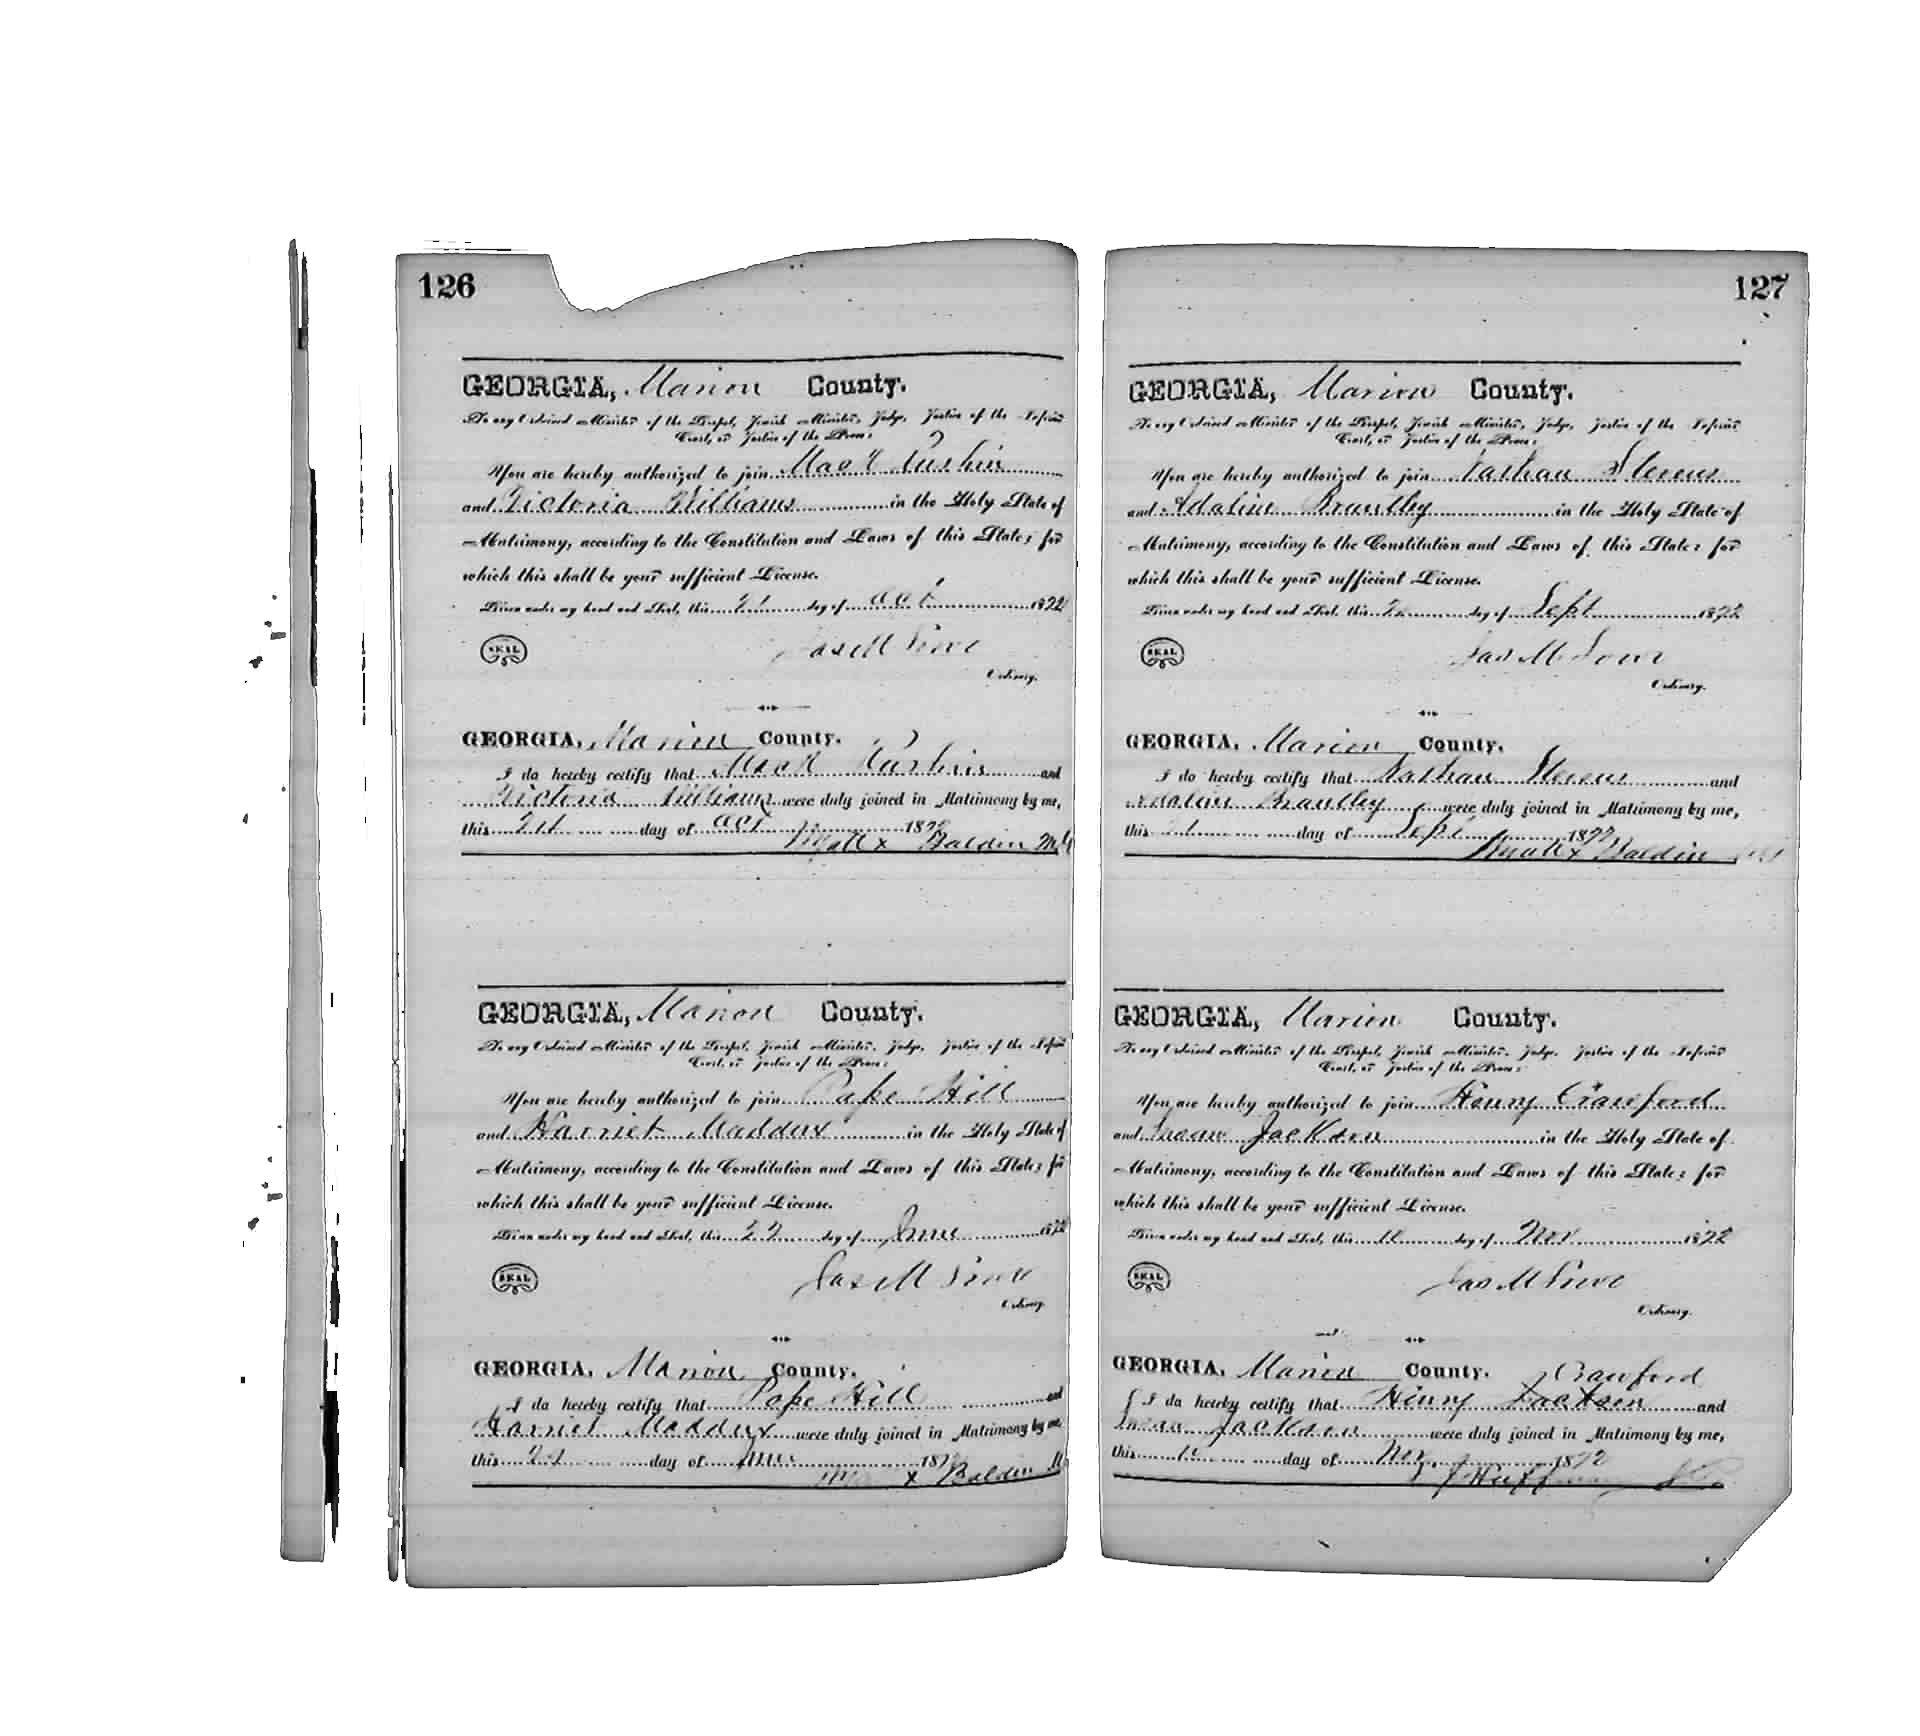 126
GEORGIA, Marion County.
To any Ordained Minister of the Gospel, Jewish Minister, Judge, Justice of the Inferior
Court, or Justice of the Peace:
You are hereby authorized to join Mack Rushin
and Victoria Williams in the Holy State of
Matrimony, according to the Constitution and Laws of this State; for
which this shall be your sufficient License.
Given under my hand and Seal, this 21 day of Oct 1872
SEAL
Jas M Lowe
Ordinary.
GEORGIA, Marion County.
I do hereby certify that Mack Rushin and
Victoria Williams were duly joined in Matrimony by me,
this 21 day of Oct 187
x Baldin
GEORGIA, Marion County.
To any Ordained Minister of the Gospel, Jewish Minister, Judge, Justice of the Inferior
Court, or Justice of the Peace:
You are hereby authorized to join Pape Hill
and Harriet Maddux in the Holy State of
Matrimony, according to the Constitution and Laws of this State; for
which this shall be your sufficient License.
Given under my hand and Seal, this day of June 1872
SEAL
Jas M Lowe
Ordinary.
GEORGIA, Marion County.
I do hereby certify that Pape Hill and
Harriet Maddux were duly joined in Matrimony by me,
this day of June 187
x Baldin
127
GEORGIA, Marion County.
To any Ordained Minister of the Gospel, Jewish Minister, Judge, Justice of the Inferior
Court, or Justice of the Peace:
You are hereby authorized to join Nathan Stevens
and Adaline Brantley in the Holy State of
Matrimony, according to the Constitution and Laws of this State; for
which this shall be your sufficient License.
Given under my hand and Seal, this day of Sept 1872
SEAL
Jas M Lowe
Ordinary.
GEORGIA, Marion County.
I do hereby certify that Nathan Stevens and
Adaline Brantley were duly joined in Matrimony by me,
this day of Sept 1872
x Baldin
GEORGIA, Marion County.
To any Ordained Minister of the Gospel, Jewish Minister, Judge, Justice of the Inferior
Court, or Justice of the Peace:
You are hereby authorized to join Henry Crawford
and Jackson in the Holy State of
Matrimony, according to the Constitution and Laws of this State; for
which this shall be your sufficient License.
Given under my hand and Seal, this 10 day of Nov 1872
SEAL
Jas M Lowe
Ordinary.
GEORGIA, Marion County. Crawford
I do hereby certify that Henry Jackson and
Jackson were duly joined in Matrimony by me,
this 10 day of Nov 1872